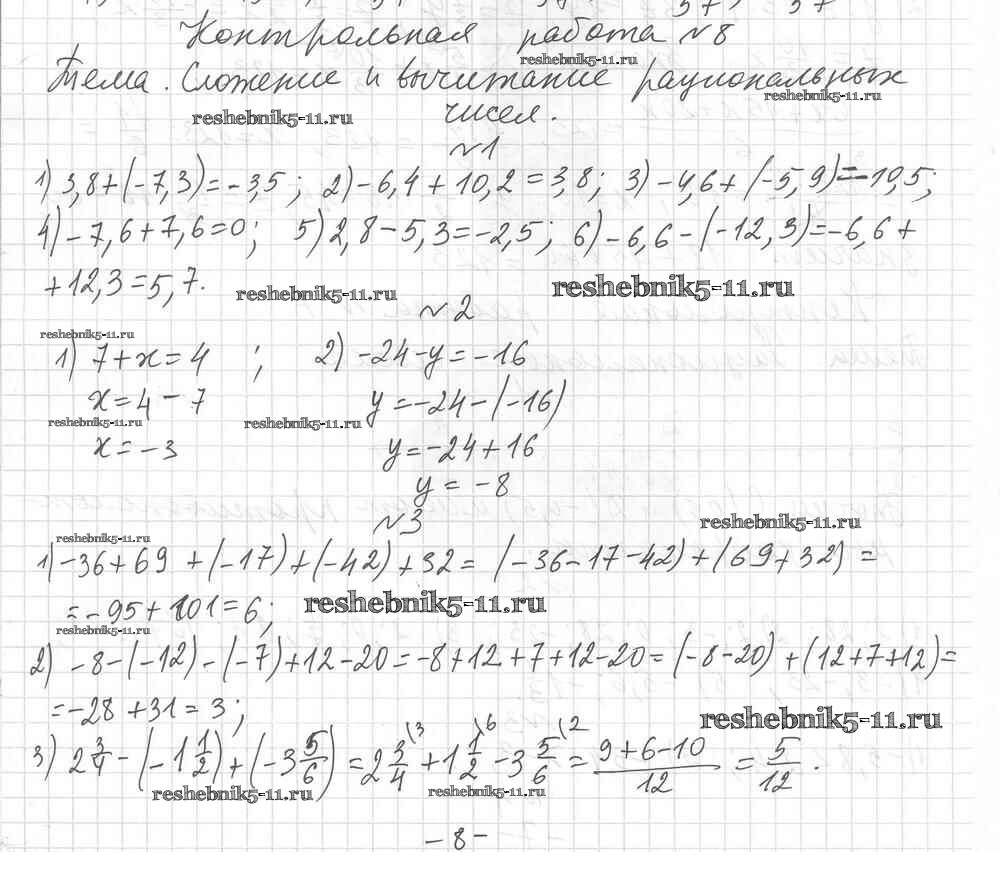 Контрольная работа №8
reshebnik5-11.ru
Тема. Сложение и вычитание рациональных
reshebnik5-11.ru
reshebnik5-11.ru
чисел.
№1
1) 3,8+(-7,3)=-3,5; 2) -6,4+10,2=3,8; 3) -4,6+(-5,9)=-10,5;
4) -7,6+7,6=0; 5) 2,8-5,3=-2,5; 6) -6,6-(-12,3)=-6,6+
+12,3=5,7.
reshebnik5-11.ru reshebnik5-11.ru
№2
reshebnik5-11.ru
1) 7+x=4 ; 2) -24-y=-16
x=4-7 y=-24-(-16)
reshebnik5-11.ru reshebnik5-11.ru
x=-3 y=-24+16
y=-8
№3
reshebnik5-11.ru
reshebnik5-11.ru
1) -36+69+(-17)+(-42)+32=(-36-17-42)+(69+32)=
=-95+101=6;
reshebnik5-11.ru
reshebnik5-11.ru
2) -8-(-12)-(-7)+12-20=-8+12+7+12-20=(-8-20)+(12+7+12)=
=-28+31=3;
reshebnik5-11.ru
3) 2 3/4 - (-1 1/2) + (-3 5/6) = 2 3/4 \3 + 1 1/2 \6 - 3 5/6 \2 = (9+6-10)/12 = 5/12.
reshebnik5-11.ru reshebnik5-11.ru
-8-